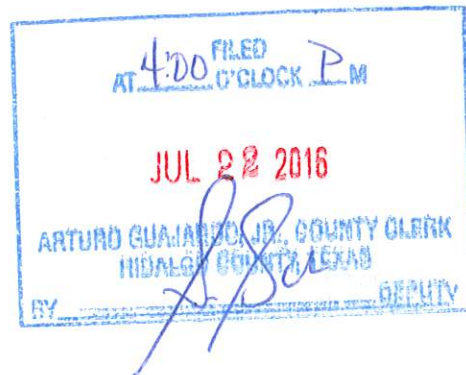 FILED
AT 4:00 O'CLOCK P M
JUL 22 2016
ARTURO GUAJARDO, JR., COUNTY CLERK
HIDALGO COUNTY, TEXAS
BY DEPUTY